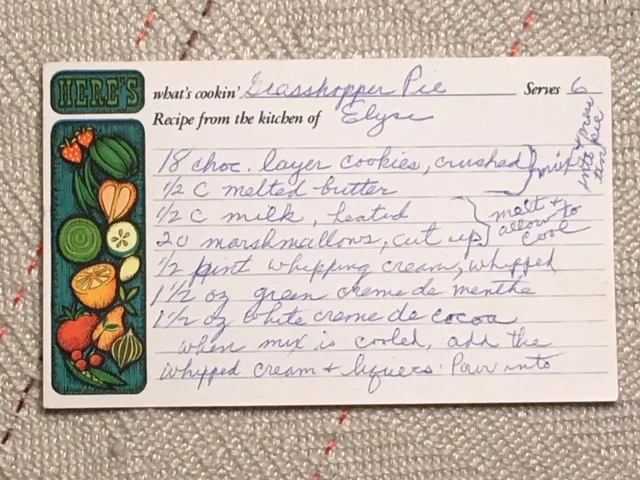 HERE'S what's cookin' Grasshopper Pie Serves 6
Recipe from the kitchen of Elyse
18 choc. layer cookies, crushed } mix + press into pie tin
1/2 C melted butter
1/2 C milk, heated } melt + allow to cool
20 marshmallows, cut up
1/2 pint whipping cream, whipped
1 1/2 oz green creme de menthe
1 1/2 oz white creme de cocoa
when mix is cooled, add the
whipped cream + liquers. Pour into